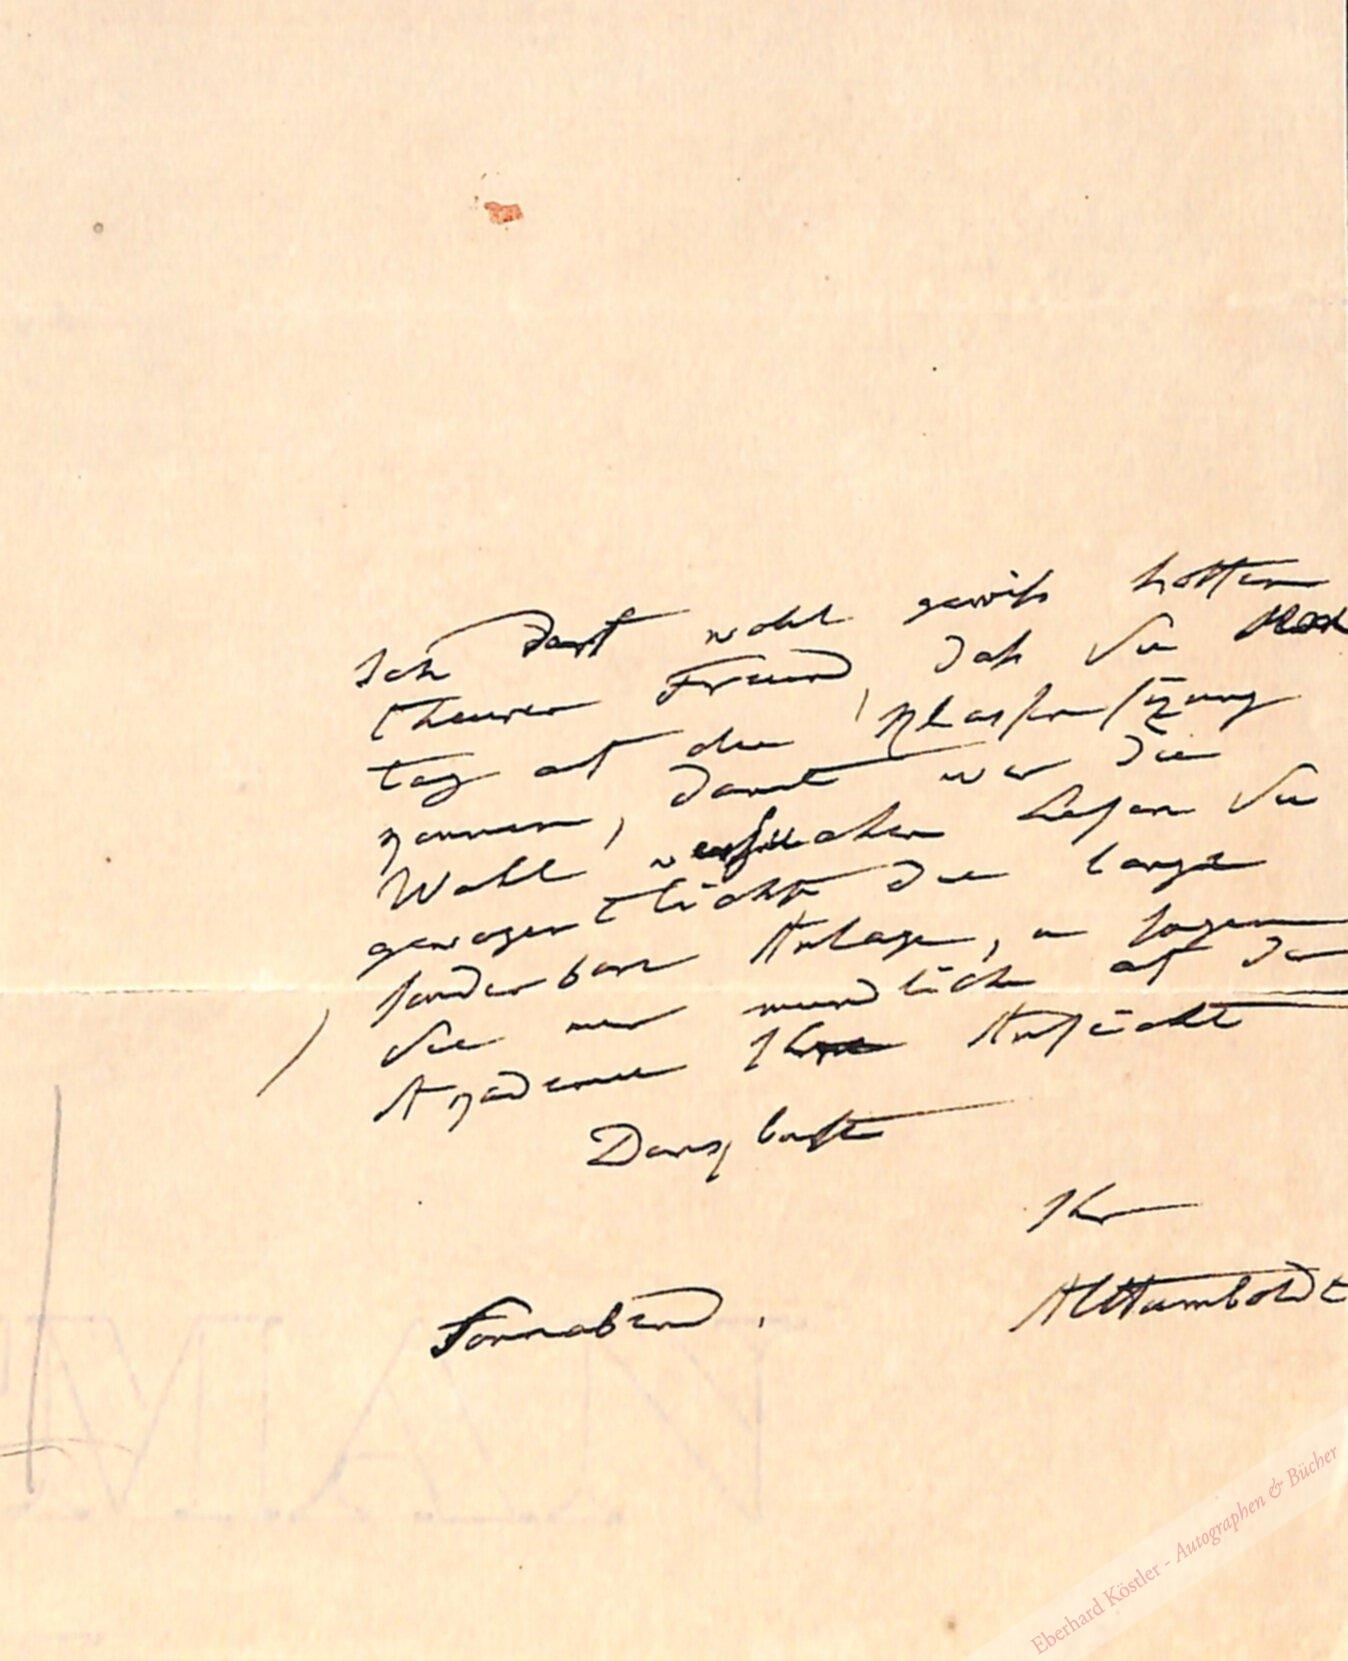 Ich darf wohl gewiss hoffen
theurer Freund, dass Sie Mon
tag auf die Klassensizung
kommen, damit wir die
Wahl versuchen. Lesen Sie
gewogentlichst die lange
sonderbare Anlage, u sagen
Sie mir mündlich auf der
Akademie Ihre Ansicht
Dankbarst
Ihr
AlHumboldt
Sonnabend.
Eberhard Köstler - Autographen & Bücher